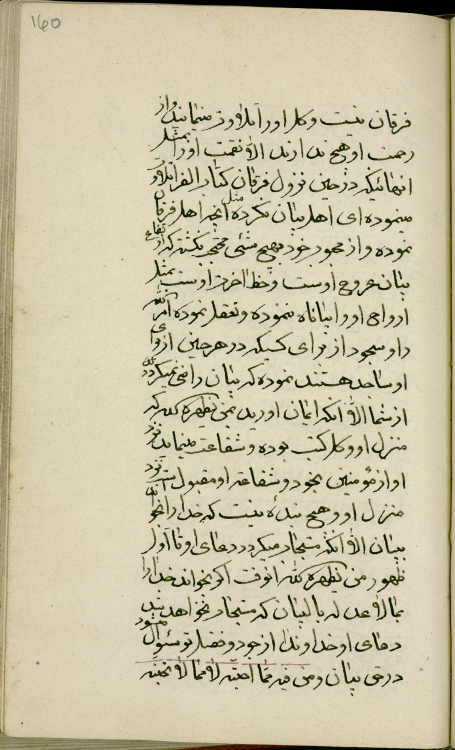 160
فرقان نیست و کلا اورا تلاوت مینمایند و از
رحمت او هیچ ندارند الا نقمت اورا بمثل
انهائیکه در حین نزول فرقان کتاب الف را تلاوت
مینموده ای اهل بیان نکرده مثل آنچه اهل فرقان
نموده و از محبوب خود بهیچ شئی محتجب نگشته که ارتفاع
بیان عروج اوست و حظ اخرت اوست بمثل
ارواح او و ایناناه ننموده و تعقل نموده امر الله
را و سجود از برای کسیکه در هر حین از برای
او ساجد هستند نموده که بیان راضی نمیگردد
از شما الا آنکه ایمان اورید بمن یظهره الله که
منزل او و کل کتب بوده و شفاعت مینماید نزد
او از مؤمنین بخود و شفاعت او مقبول است نزد
منزل او و هیچ بنده نیست که خدا را بخواند
ببیان الا آنکه مستجاب میگردد دعای او تا اول
ظهور من یظهره الله انوقت اگر بخواند خدا را
بما لا عدل له بالبیان که مستجاب نخواهد شد
دعای او خداوندا از جود و فضل تو سئوال میشود
در حق بیان و من فیه مما احبته لا مما لا تحبه